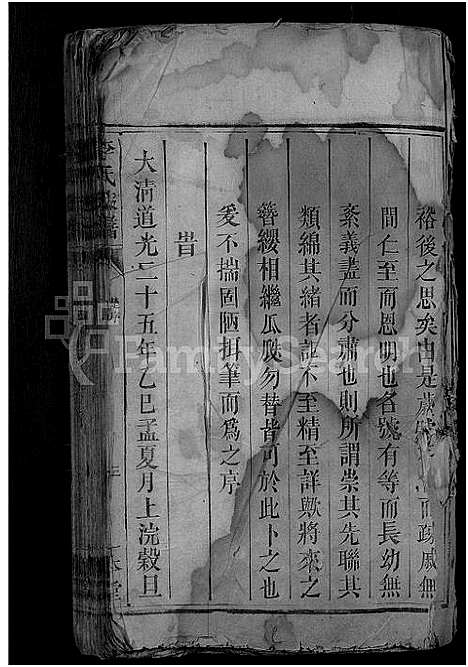 裕後之思矣由是
而踈戚無
間仁至而恩明也名號有等而長幼無
紊義盡而分肅也則所謂崇其先聯其
類綿其緒者詎不至精至詳歟將來之
簪纓相繼瓜瓞勿替皆可於此卜之也
爰不揣固陋捐筆而為之序
旹
大清道光二十五年乙巳孟夏月上浣穀旦
李氏族譜
堂
FamilySearch